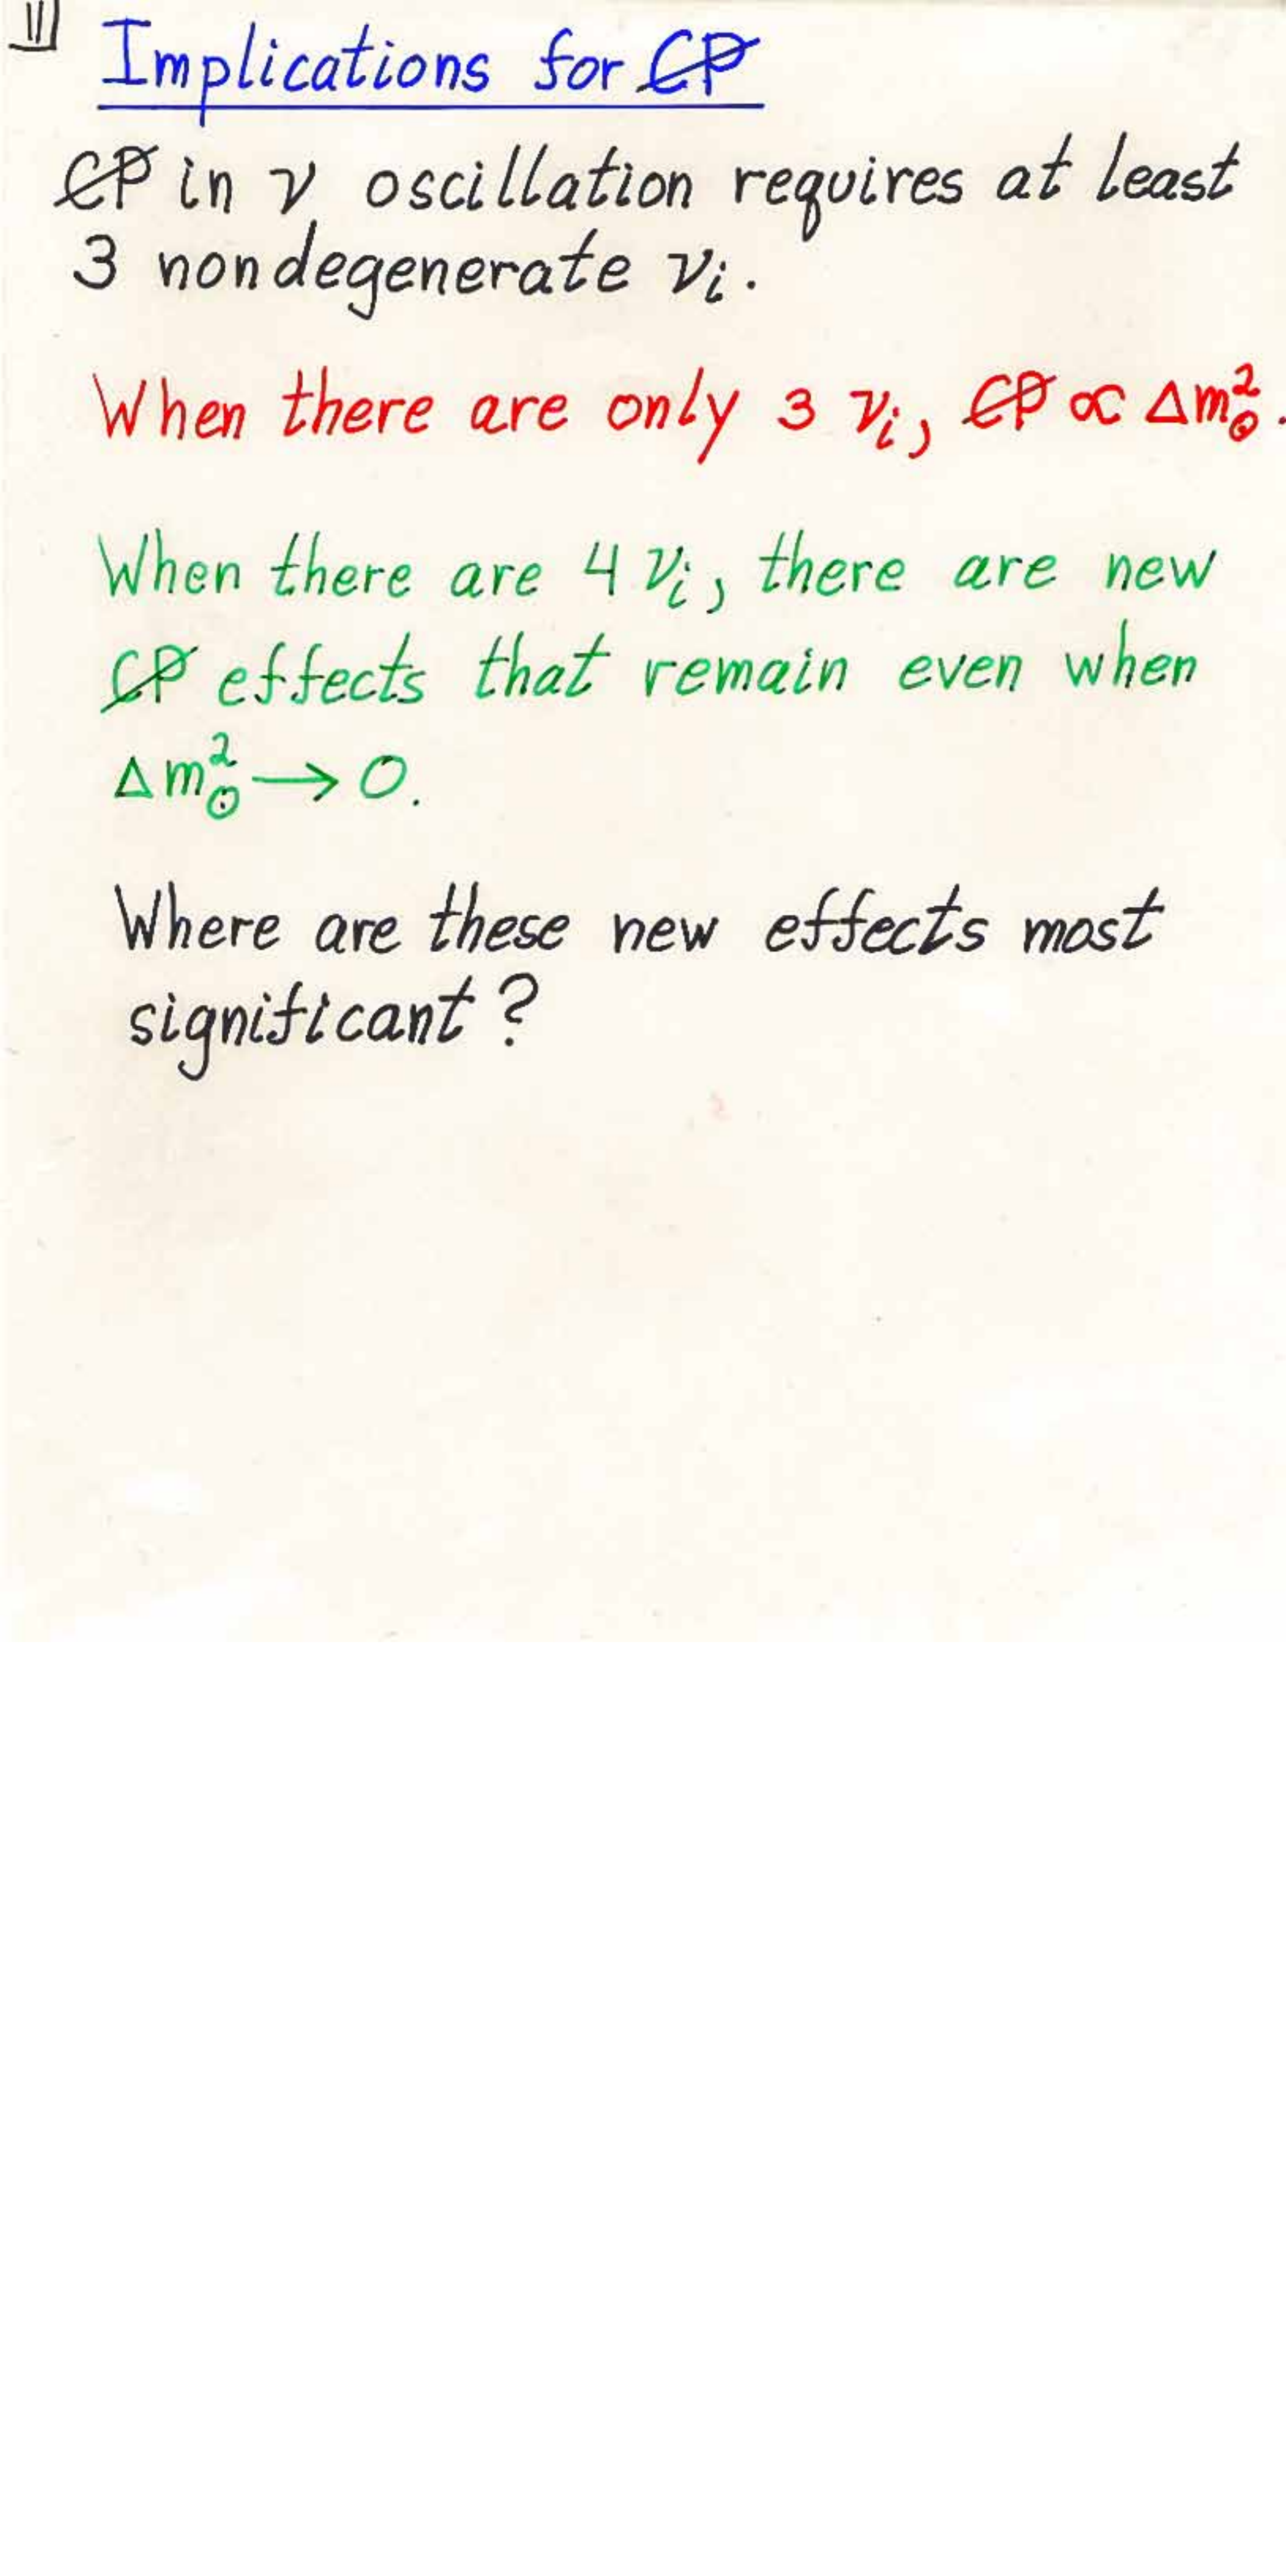 11
Implications for C̸P̸
C̸P̸ in ν oscillation requires at least
3 nondegenerate νᵢ.
When there are only 3 νᵢ, C̸P̸ ∝ Δm²⊙.
When there are 4 νᵢ, there are new
C̸P̸ effects that remain even when
Δm²⊙ → 0.
Where are these new effects most
significant?